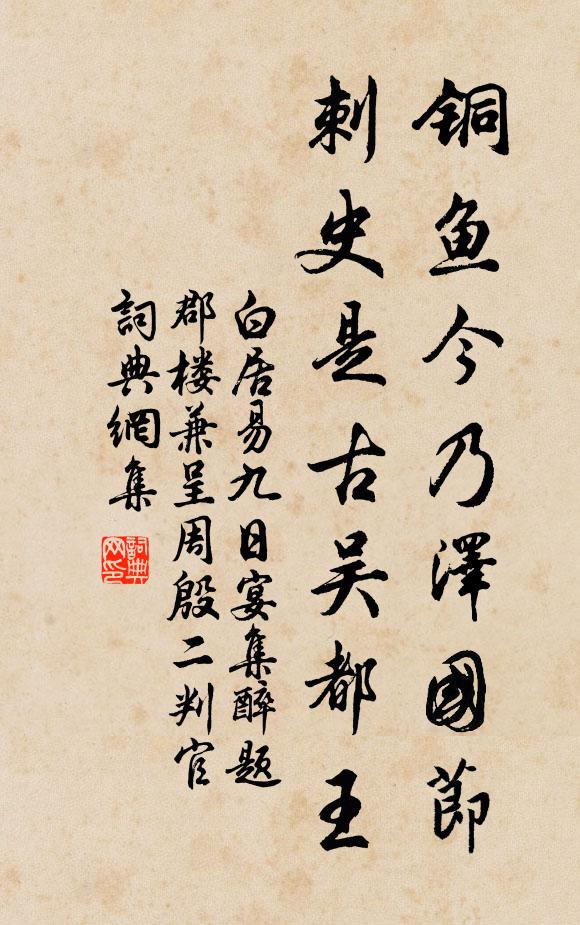 铜鱼今乃澤國節
刺史是古吴都王
白居易九日宴集醉题
郡楼兼呈周殷二判官
詞典網集
詞典
网印